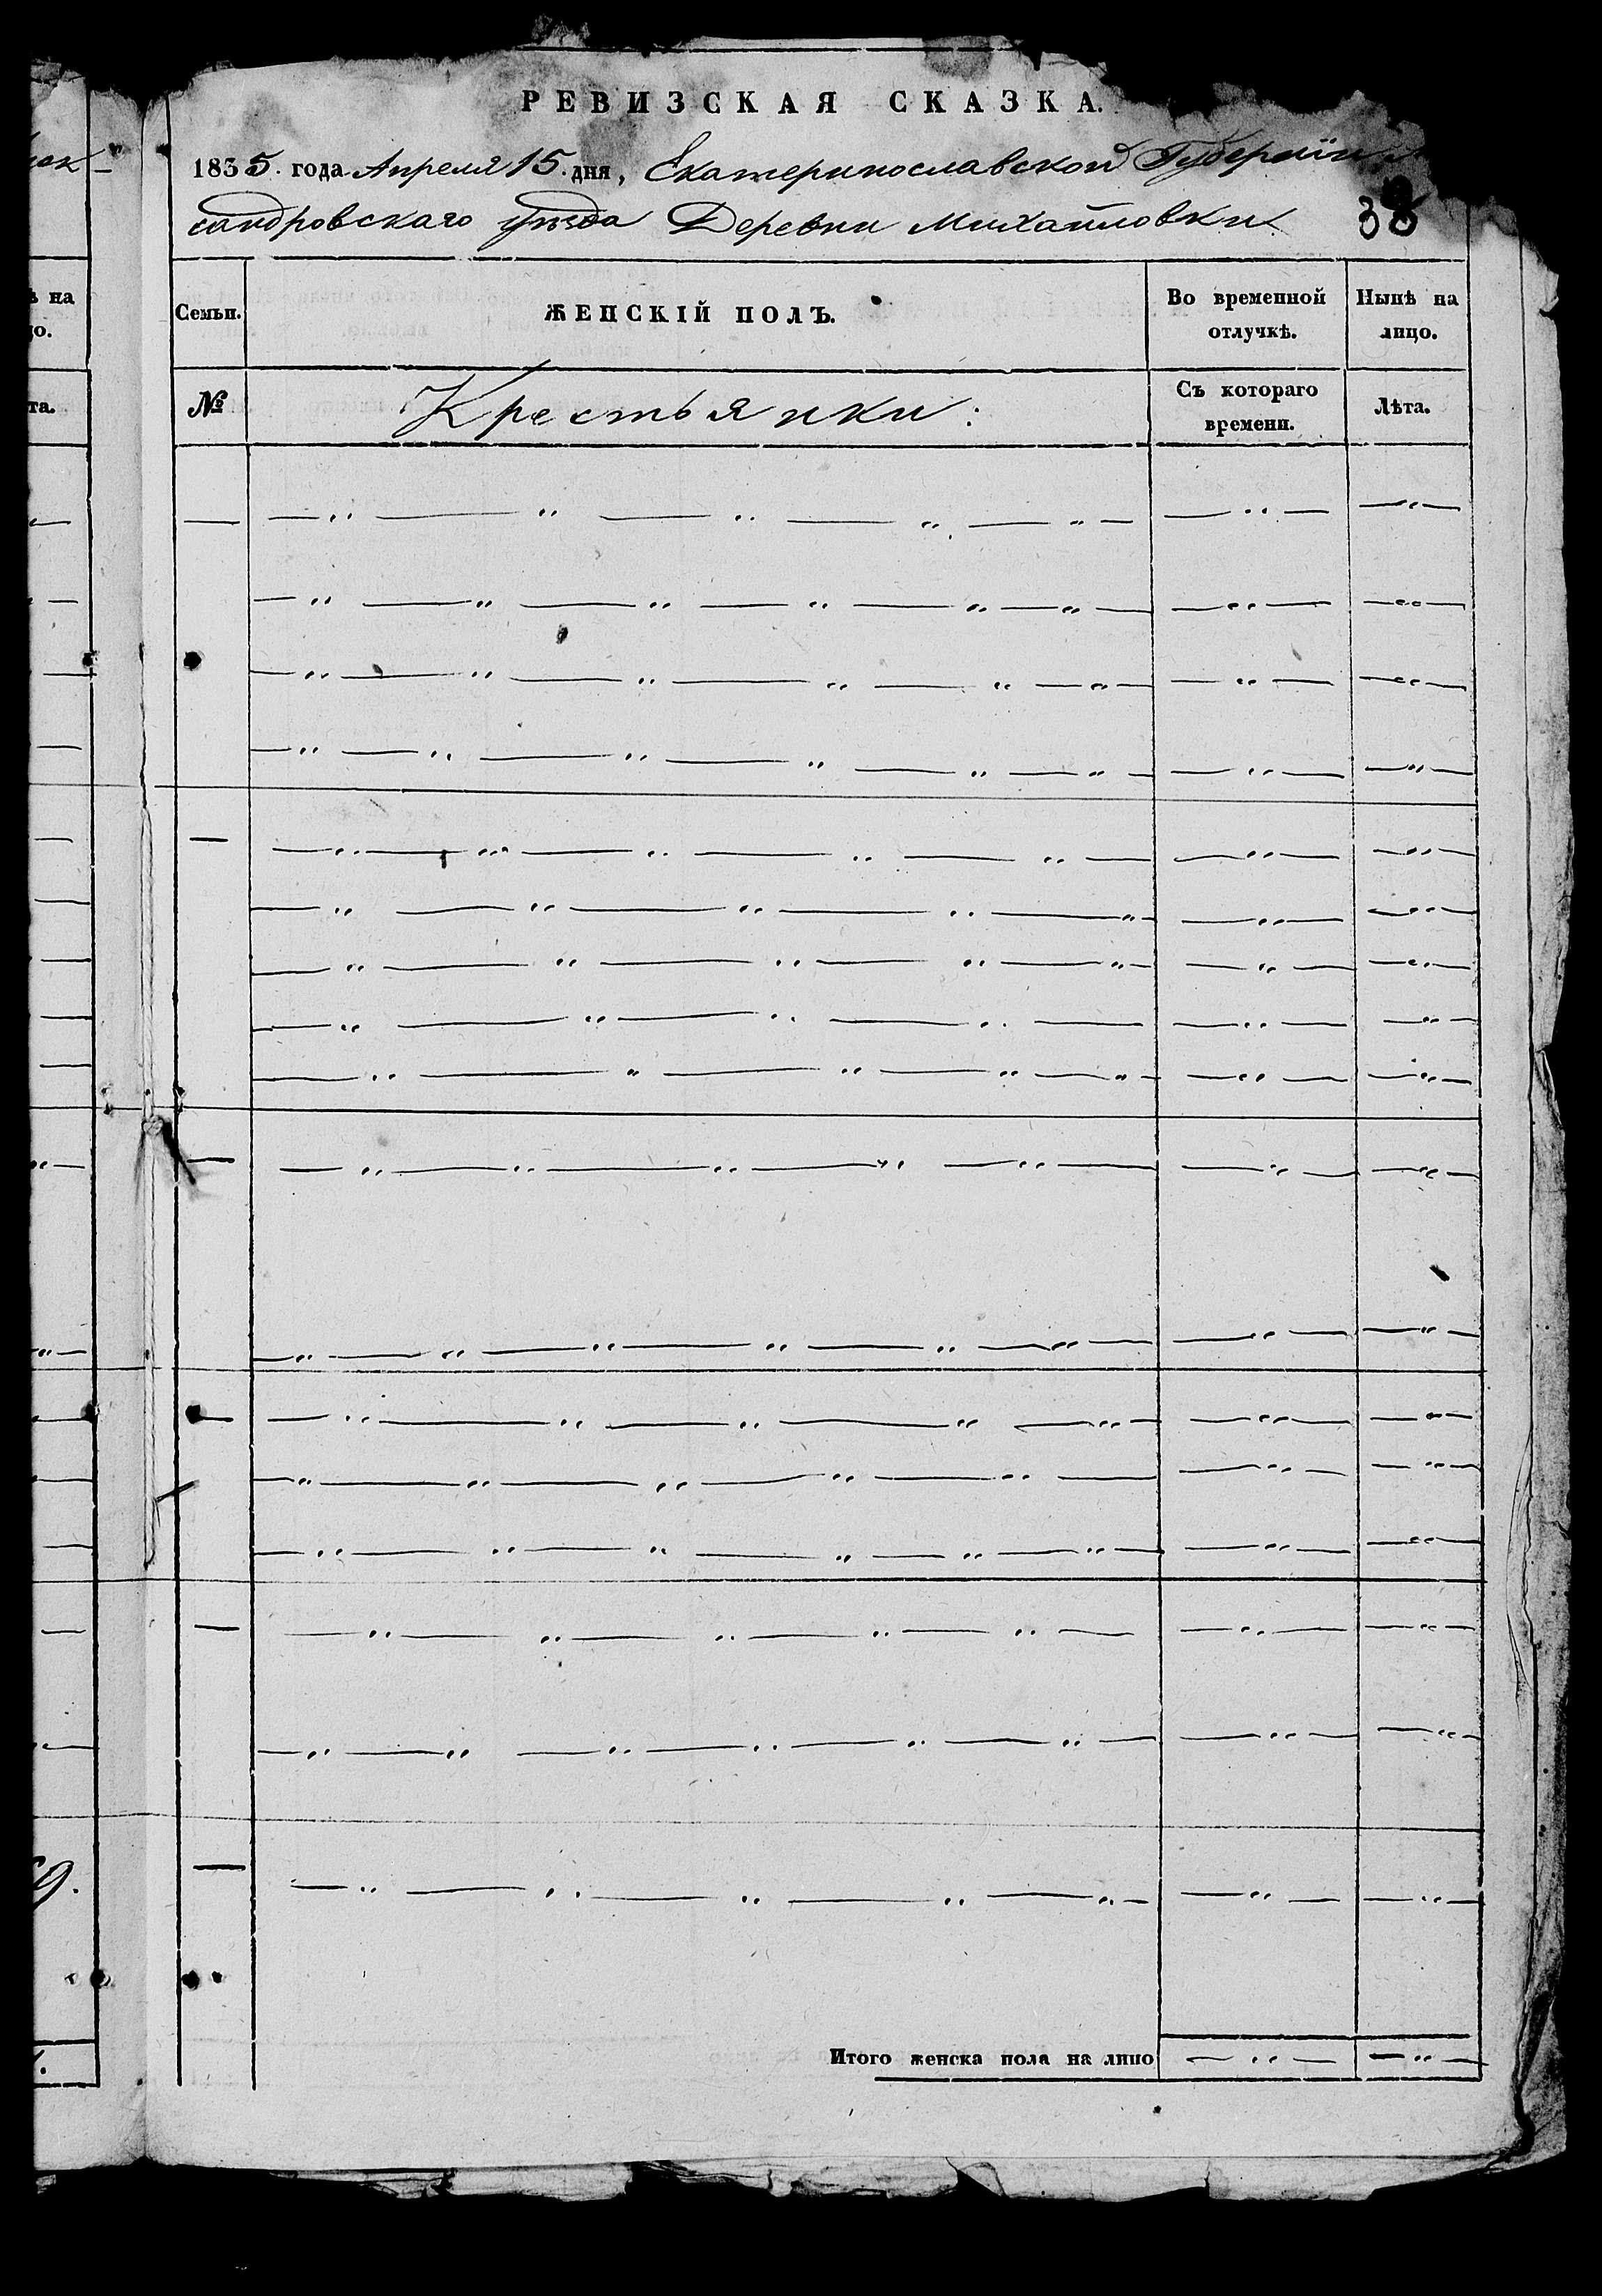 РЕВИЗСКАЯ СКАЗКА.
1835. года Апреля 15. дня, Екатеринославской Губерніи
сандровскаго уѣзда Деревни Михайловки
38
Семьи.
ЖЕНСКІЙ ПОЛЪ.
Во временной
отлучкѣ.
Нынѣ на
лицо.
№
Крестьянки:
Съ котораго
времени.
Лѣта.
Итого женска пола на лицо